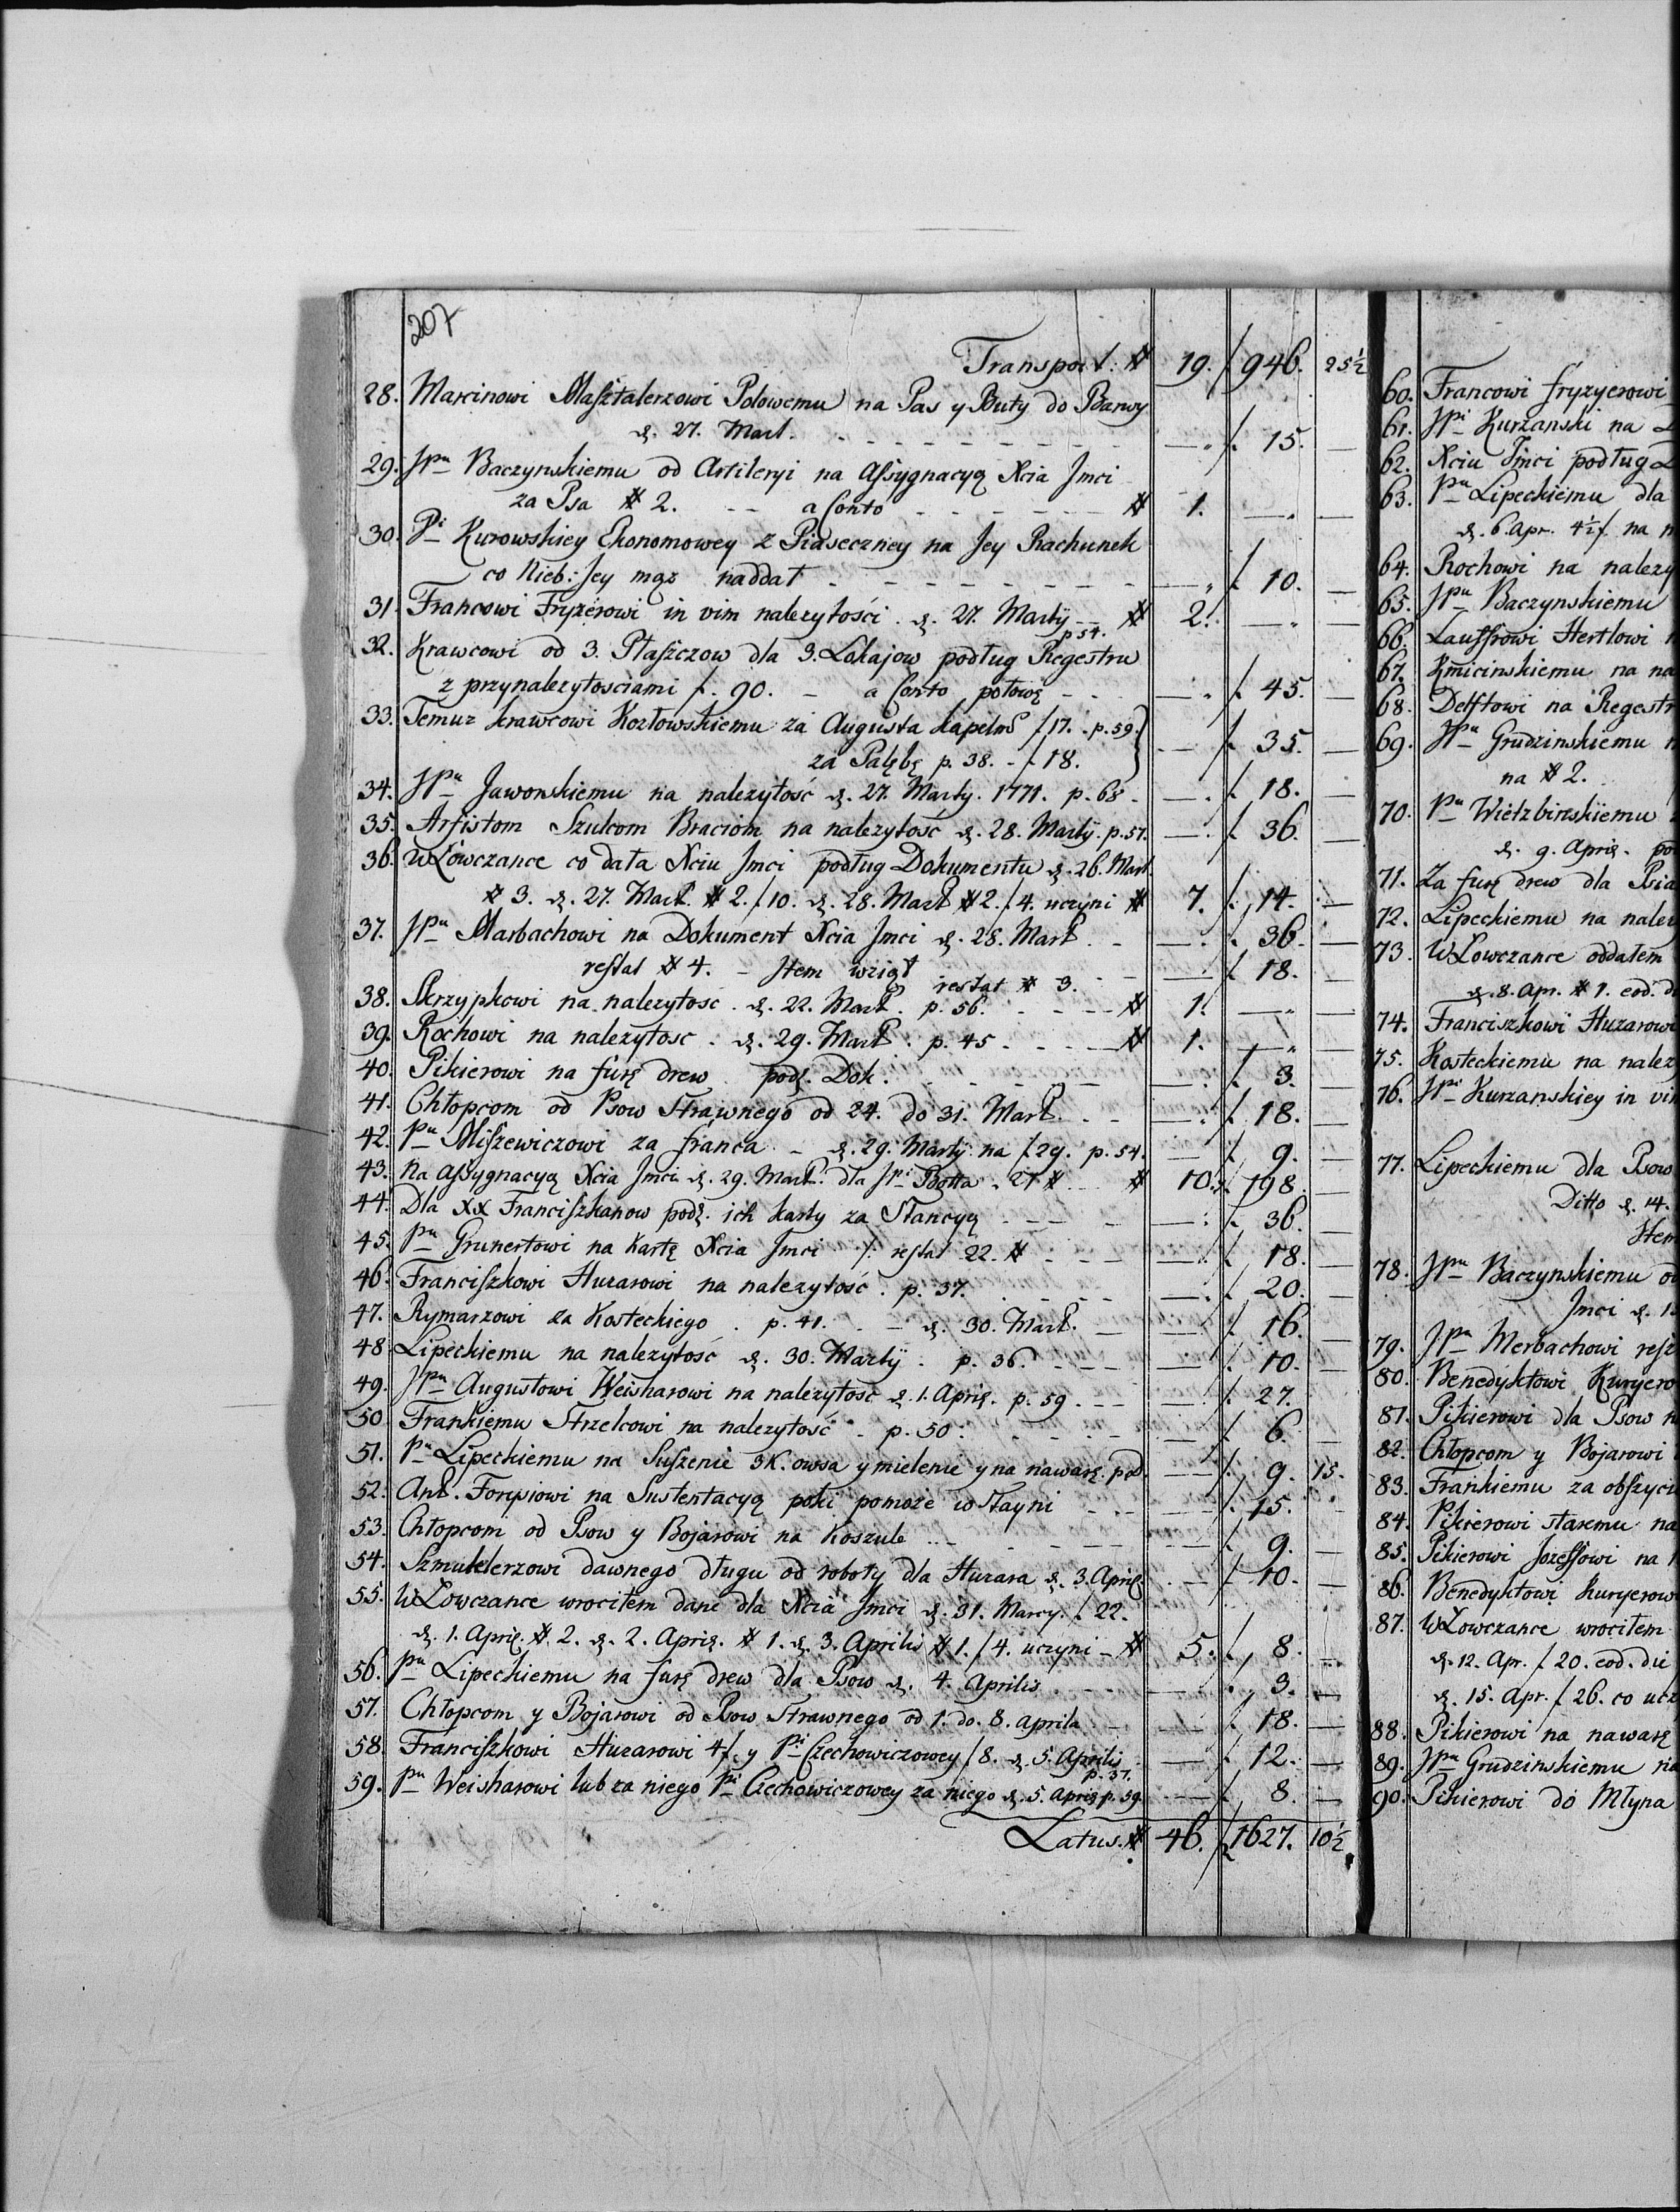 207
Transport: # 19. f. 946. 25½
28. Marcinowi Masztalerzowi Polowemu na Pas y Buty do Barwy
d. 27. Mart. — f. 15. —
29. JPu Baczynskiemu od Artileryi na Assygnacyą Xcia Jmci
za Psa # 2. a Conto # 1. — —
30. Pi Kurowskiey Ekonomowey z Piaseczney na Jey Rachunek
co Nieb: Jey mąz naddał — f. 10. —
31. Francowi Fryzerowi in vim nalezytości d. 27. Martÿ # 2. — —
p 54.
32. Krawcowi od 3. Płaszczow dla 3. Lokajow podług Regestru
z przynalezytosciami f. 90. — a Conto połowę — f. 45. —
33. Temuz krawcowi Kozłowskiemu za Augusta f 17. p. 59.
za p. 38. f 18. — f. 35. —
34. JPu Jaworskiemu na nalezytość d. 27. Martÿ. 1771. p. 68 — f. 18. —
35. Arfistom Szulcom Braciom na nalezytość d. 28. Martÿ. p. 57. — f. 36. —
36. WŁowczance co data Xciu Jmci podług Dokumentu d. 26. Mart.
# 3. d. 27. Mart. # 2. f. 10. d. 28. Mart # 2. f. 4. uczyni # 7. f. 14. —
37. JPu Marbachowi na Dokument Xcia Jmci d. 28. Mart. — f. 36. —
restat # 4. — Item wziął restat # 3. — f. 18. —
38. Skrzypkowi na nalezytosc d. 22. Mart. p. 56. # 1. — —
39. Rochowi na nalezytosc d. 29. Mart. p. 45 # 1. — —
40. Pikierowi na furę drew podł. Dok. — f. 3. —
41. Chłopcom od Psow Strawnego od 24. do 31. Mart. — f. 18. —
42. Pu Miszewiczowi za franca d. 29. Martÿ na f. 29. p. 54. — f. 9. —
43. Na assygnacyą Xcia Jmci d. 29. Mart. dla JPi Botta 21 # # 10. f. 198. —
44. Dla XX Franciszkanow podł. ich karty za Stancyą — f. 36. —
45. Pu Grunertowi na Kartę Xcia Jmci /: restat 22. # — f. 18. —
46. Franciszkowi Huzarowi na nalezytość. p. 37. — f. 20. —
47. Rymarzowi za Kosteckiego. p. 41. — d. 30. Mart. — f. 16. —
48. Lipeckiemu na nalezytość d. 30. Martÿ. p. 36. — f. 10. —
49. JPu Augustowi Weisharowi na nalezytosc d. 1. April. p. 59. — f. 27.
50. Frankiemu Strzelcowi na nalezytość. p. 50. — f. 6. —
51. Pu Lipeckiemu na Suszenie 3 K. owsa y mielenie y na nawarę. pod. — f. 9. 15.
52. Ant. na Sustentacyą poki pomoze w Stayni — f. 15.
53. Chłopcom od Psow y Bojarowi na Koszule — f. 9. —
54. Szmuklerzowi dawnego długu od roboty dla Huzara d. 3. April. — f. 10. —
55. WŁowczance wrocilem dane dla Xcia Jmci d. 31. Marcy. f. 22.
d. 1. April. # 2. d. 2. April. # 1. d. 3. Aprilis # 1. f 4. uczyni # 5. f. 8. —
56. Pu Lipeckiemu na furę drew dla Psow d. 4. Aprilis — f. 3. —
57. Chłopcom y Bojarowi od Psow Strawnego od 1. do. 8. aprila — f. 18. —
58. Franciszkowi Huzarowi 4 f. y Pi Czechowiczowey f 8. d. 5. Aprilis — f. 12. —
p. 37.
59. Pu Weisharowi lub za niego Pi Czechowiczowey za niego d. 5. April p. 59. — f. 8. —
Latus. # 46. f. 1627. 10½
60. Francowi fryzyerowi
61. JPi Kurzanski na
62. Xciu Jmci podług
63. Pu Lipeckiemu dla
d. 6. apr. 4½ f. na
64. Rochowi na nalezy
65. JPu Baczynskiemu
66. Lauffrowi Hertlowi
67. Kmicinskiemu na na
68. Delftowi na Regestr
69. JPu Grudzinskiemu
na # 2.
70. Pu Wierzbinskiemu
d. 9. April. po
71. Za furę drew dla Psia
72. Lipeckiemu na nale
73. WŁowczance oddałem
d. 8. Apr. # 1. eod. d
74. Franciszkowi Huzarowi
75. Kosteckiemu na nalez
76. JPi Kurzanskiey in vi
77. Lipeckiemu dla Psow
Ditto d. 14.
Item
78. JPu Baczynskiemu od
Jmci d. 1
79. JPu Merbachowi resz
80. Benedyktowi Kuryero
81. Pikierowi dla Psow n
82. Chłopcom y Bojarowi
83. Frankiemu za obszyci
84. Pikierowi staremu na
85. Pikierowi Jozeffowi na
86. Benedyktowi Kuryerow
87. WŁowczance wrocilem
d. 12. Apr. f. 20. eod. die
d. 15. Apr. f 26. co ucz
88. Pikierowi na nawarę
89. JPu Grudzinskiemu na
90. Pikierowi do Młyna